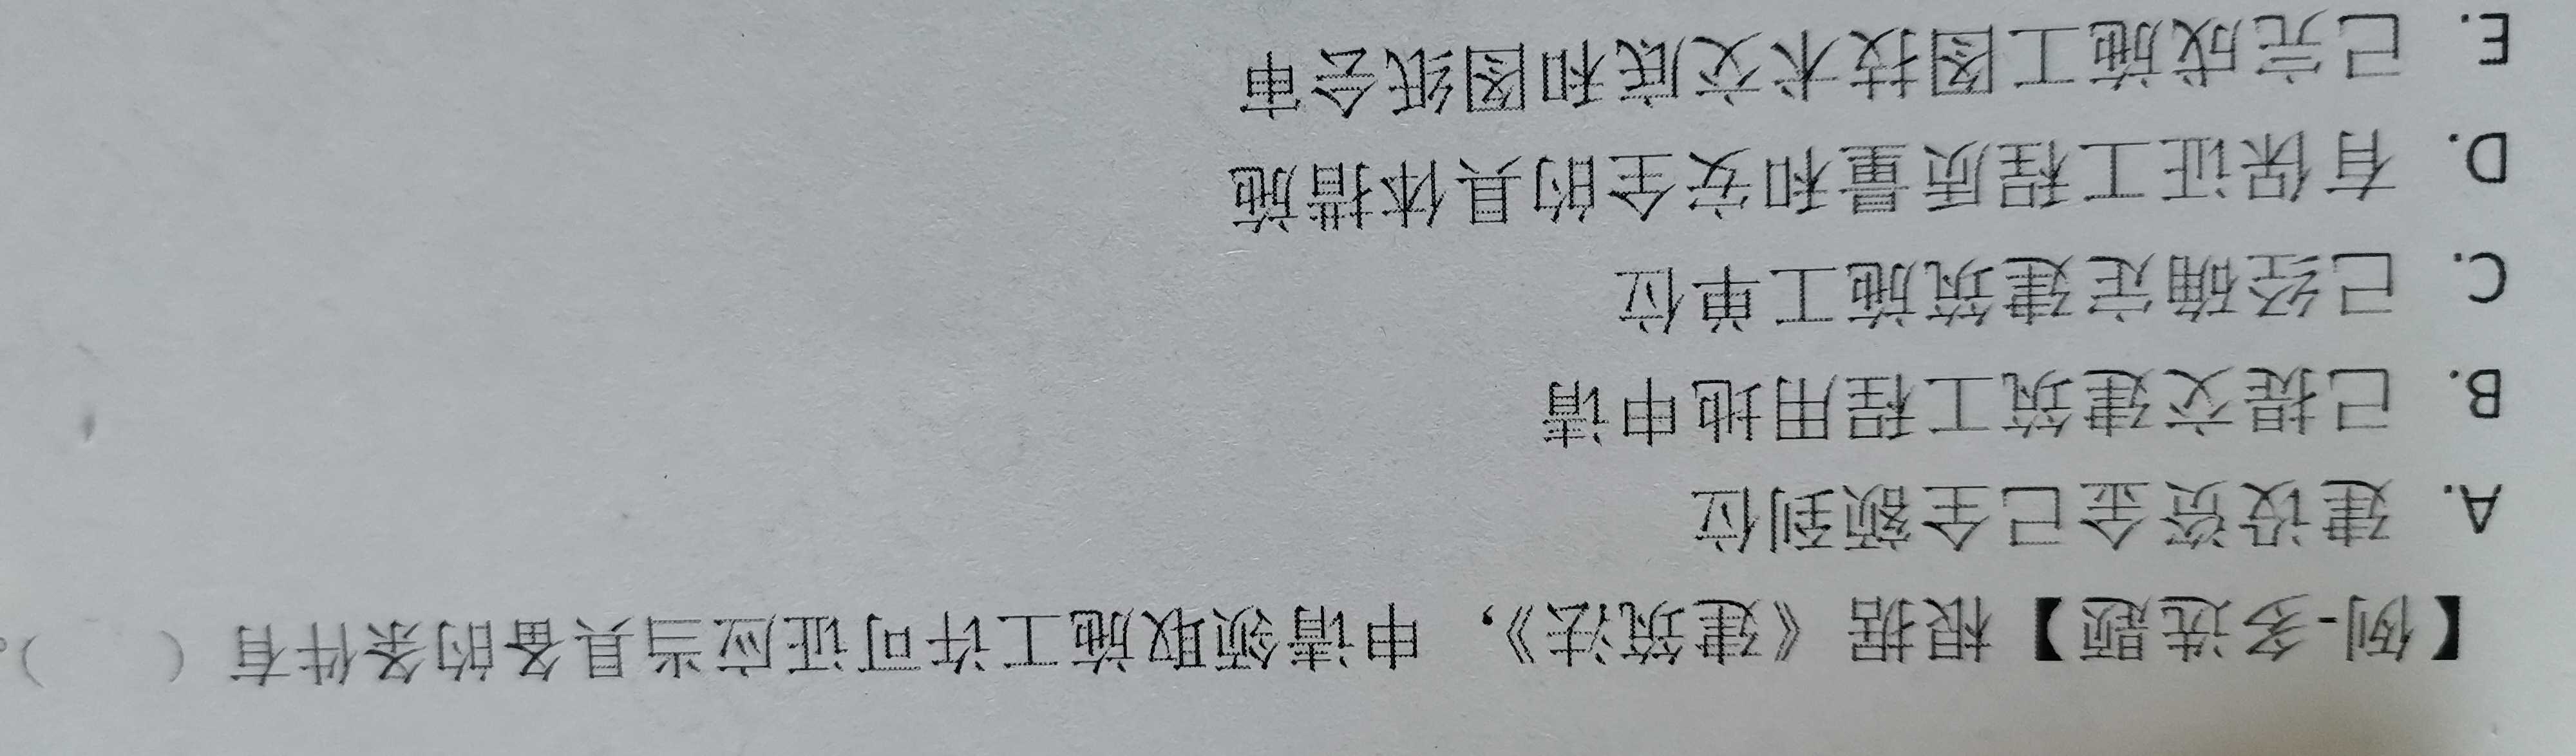 【例-多选题】根据《建筑法》，申请领取施工许可证应当具备的条件有（ ）。
A. 建设资金已全额到位
B. 已提交建筑工程用地申请
C. 已经确定建筑施工单位
D. 有保证工程质量和安全的具体措施
E. 已完成施工图技术交底和图纸会审